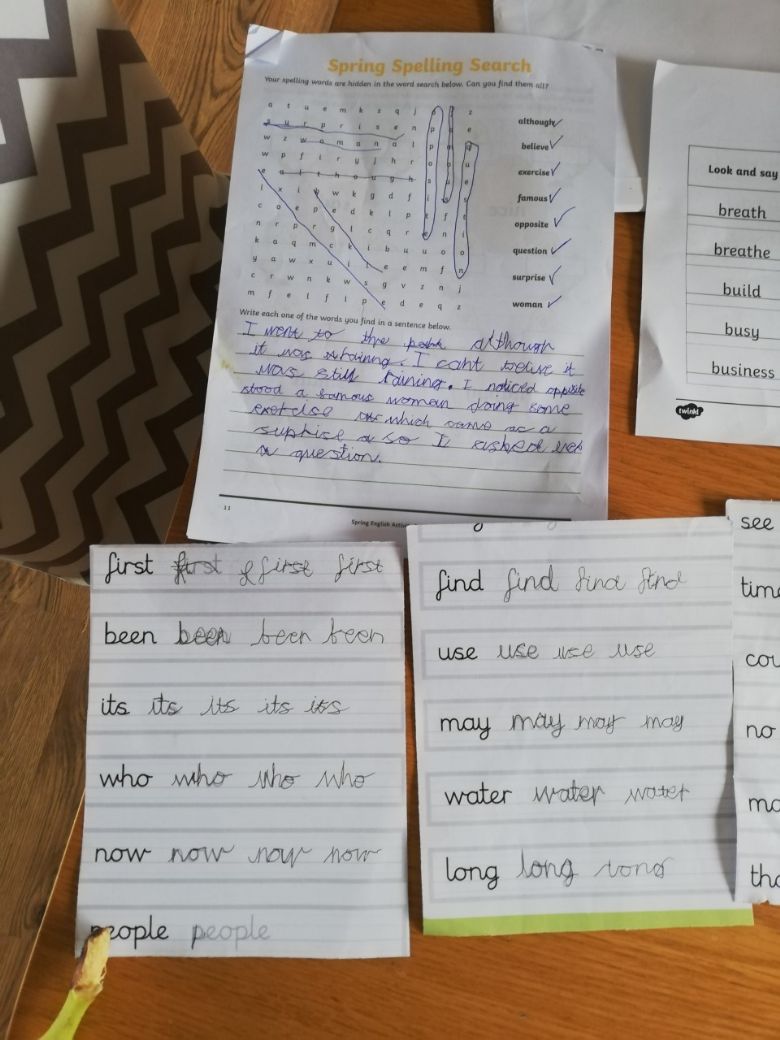 Spring Spelling Search
Your spelling words are hidden in the word search below. Can you find them all?
a t u e m k z q j z
s u r p r i s e n
w z w o m a n a l
w p f i r y j h r
e a l t h o u g h
although
believe
exercise
famous
opposite
question
surprise
woman
Write each one of the words you find in a sentence below.
I went to the although
it was raining. I cant belive it
was still raining. I noticed opposite
stood a famous woman doing some
exercise which came as a
suprise so I asked her
a question.
11
Spring English Activ
Look and say
breath
breathe
build
busy
business
twinkl
first first first first
been been been been
its its its its its
who who who who
now now now now
people people
find find find find
use use use use
may may may may
water water water
long long long
see
time
cou
no
tha